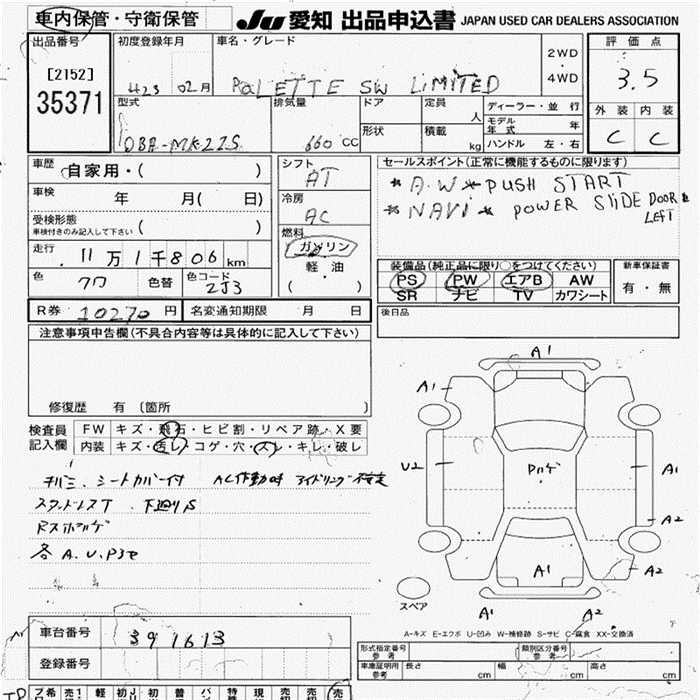 車内保管・守衛保管
JU 愛知 出品申込書 JAPAN USED CAR DEALERS ASSOCIATION
出品番号
[2152]
35371
初度登録年月
H23 02月
車名・グレード
PALETTE SW LIMITED
2WD
4WD
評価点
3.5
外装 内装
C C
型式
DBA-MK21S
排気量
660 CC
ドア
形状
定員 人
積載 kg
ディーラー・並行
モデル年式 年
ハンドル 左・右
車歴 自家用・( )
車検 年 月( 日)
受検形態
車検付きのみ記入して下さい ( )
走行 11万1千806km
色 クロ 色替 色コード ZJ3
シフト
AT
冷房
AC
燃料
ガソリン
軽・油
( )
セールスポイント(正常に機能するものに限ります)
* A.W * PUSH START
* NAVI * POWER SLIDE DOOR LEFT
装備品(純正品に限り○をつけてください)
PS PW エアB AW
SR ナビ TV カワシート
新車保証書
有・無
R券 10270 円 名変通知期限 月 日
後日品
注意事項申告欄(不具合内容等は具体的に記入して下さい)
修復歴 有 (箇所 )
検査員記入欄
FW キズ・飛石・ヒビ割・リペア跡・X要
内装 キズ・汚レ・コゲ・穴・スレ・キレ・破レ
シートカバー付 AC作動時 アイドリング不安定
下廻りS
各A.U.P3モ
A1
A1
U2
Pハゲ
A1
A2
A1
A2
A1
A2
スペア
A-キズ E-エクボ U-凹み W-補修跡 S-サビ C-腐食 XX-交換済
車台番号 391613
登録番号
形式指定番号 参考
類別区分番号 参考
車庫証明用 参考 長さ cm 幅 cm 高さ cm